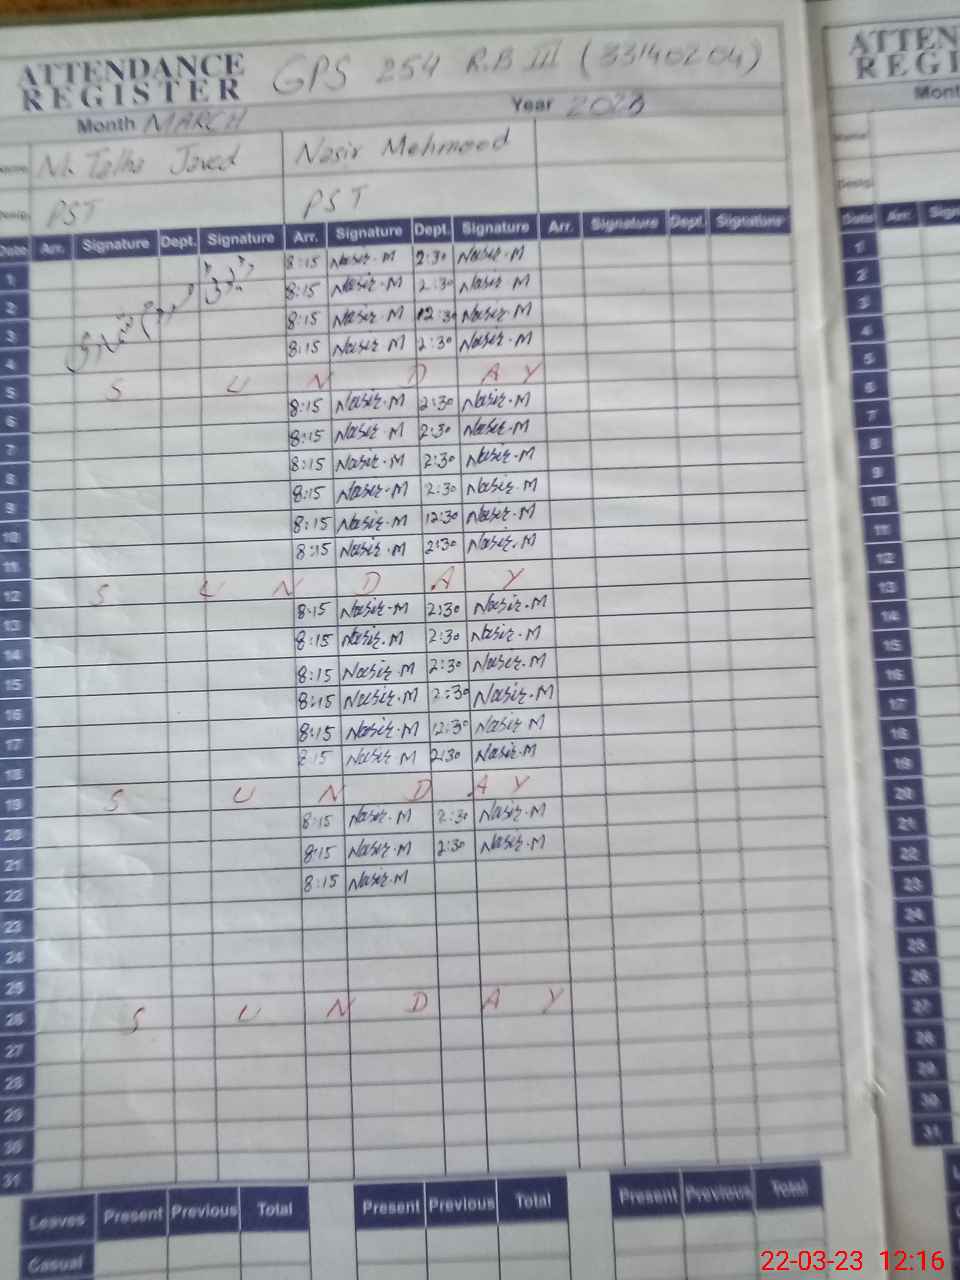 ATTENDANCE REGISTER GPS 254 R.B III (33140204)
Month MARCH Year 2023
Talha Javed Nasir Mehmood
Desig PST PST
Date Arr. Signature Dept. Signature Arr. Signature Dept. Signature Arr. Signature Dept. Signature
1 8:15 Nasir.M 2:30 Nasir.M
2 8:15 Nasir.M 2:30 Nasir.M
3 8:15 Nasir.M 12:30 Nasir.M
4 8:15 Nasir M 2:30 Nasir.M
5 S U N D A Y
6 8:15 Nasir.M 2:30 Nasir.M
7 8:15 Nasir.M 2:30 Nasir.M
8 8:15 Nasir.M 2:30 Nasir.M
9 8:15 Nasir.M 2:30 Nasir.M
10 8:15 Nasir.M 12:30 Nasir.M
11 8:15 Nasir.M 2:30 Nasir.M
12 S U N D A Y
13 8:15 Nasir-M 2:30 Nasir.M
14 8:15 Nasir.M 2:30 Nasir.M
15 8:15 Nasir.M 2:30 Nasir.M
16 8:15 Nasir.M 2:30 Nasir.M
17 8:15 Nasir.M 12:30 Nasir.M
18 8:15 Nasir M 2:30 Nasir.M
19 S U N D A Y
20 8:15 Nasir.M 2:30 Nasir.M
21 8:15 Nasir.M 2:30 Nasir.M
22 8:15 Nasir.M
23
24
25
26 S U N D A Y
27
28
29
30
31
Leaves Present Previous Total Present Previous Total Present Previous Total
Casual
ATTEN
REGI
Mont
Name
Desig
Date Arr. Sign
1
2
3
4
5
6
7
8
9
10
11
12
13
14
15
16
17
18
19
20
21
22
23
24
25
26
27
28
29
30
31
22-03-23 12:16